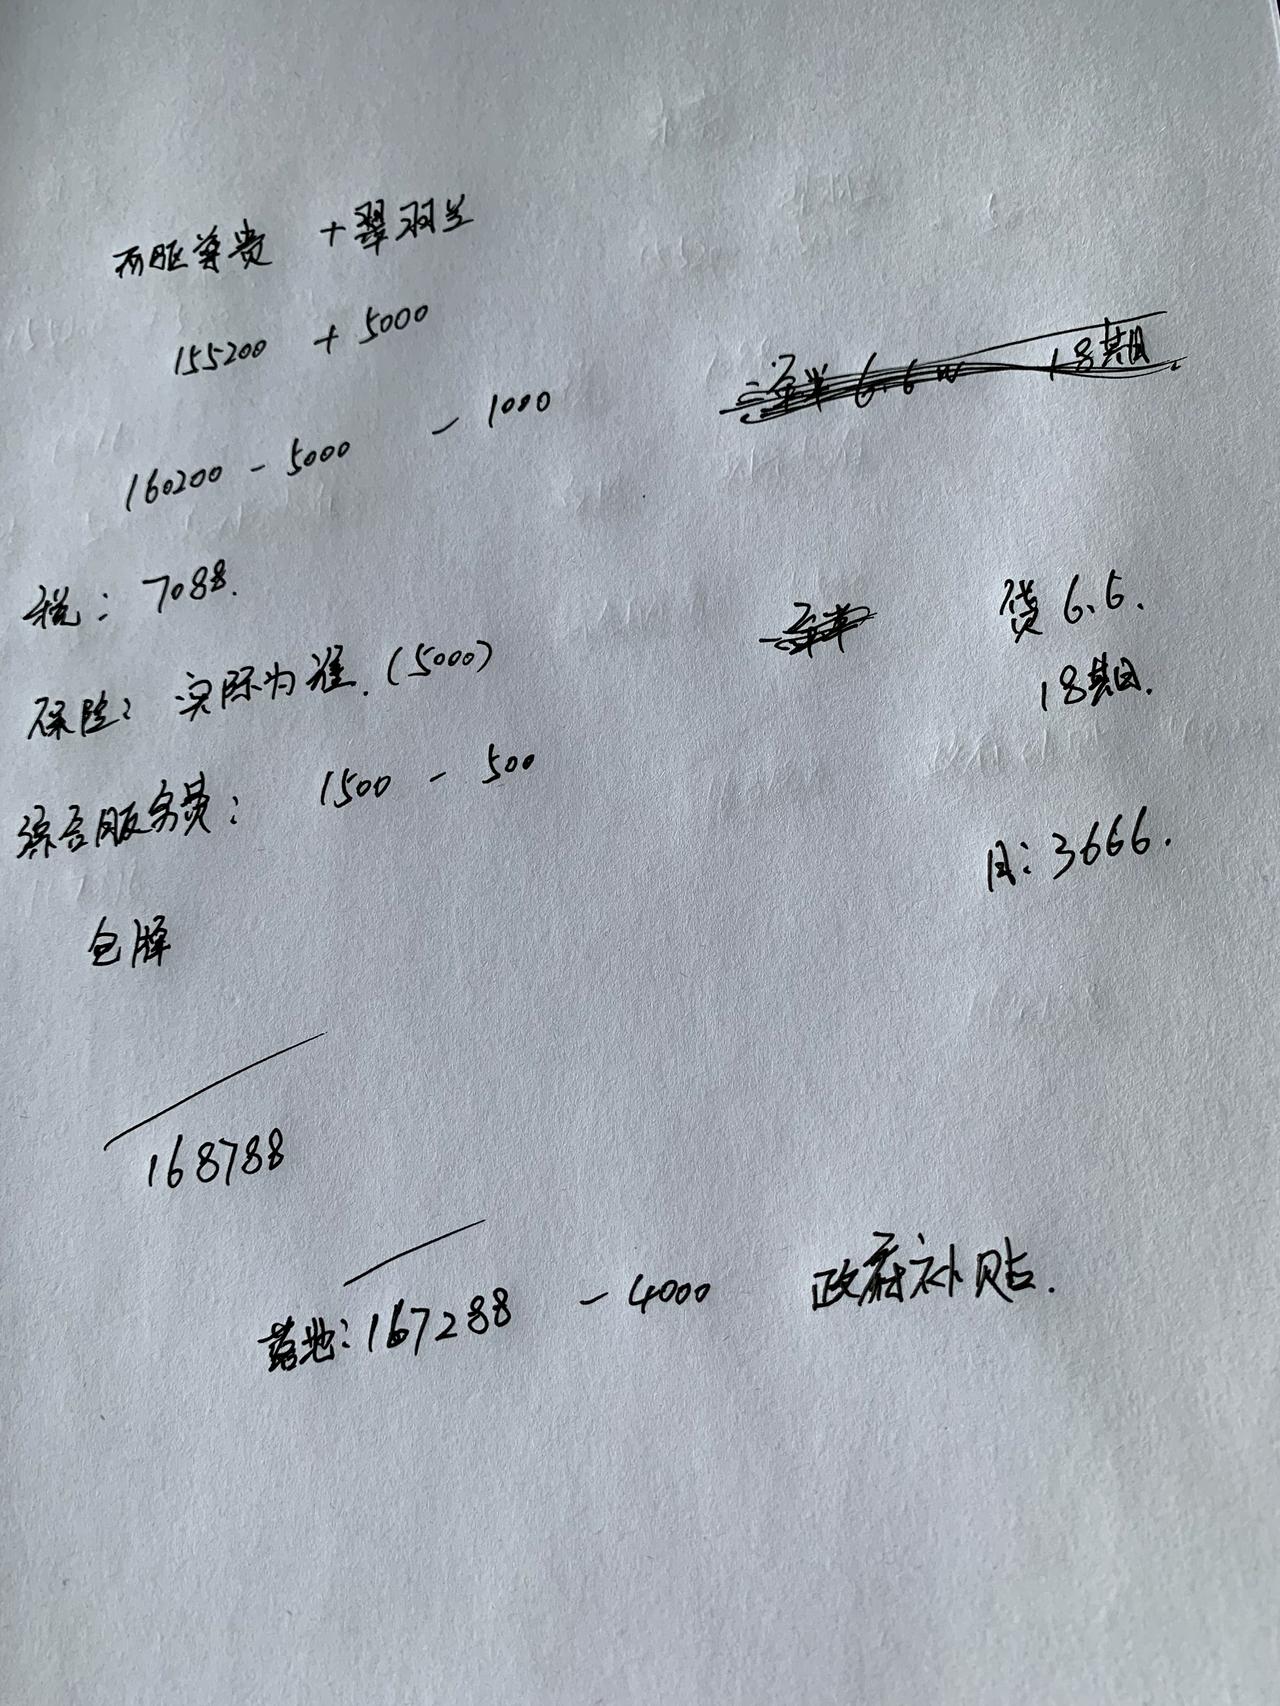 两驱尊贵 +翠羽兰
155200 + 5000
160200 - 5000 - 1000
18期
税: 7088.
贷 6.6.
18期.
保险: 实际为准.(5000)
综合服务费: 1500 - 500
月: 3666.
包牌
168788
落地: 167288 - 4000 政府补贴.